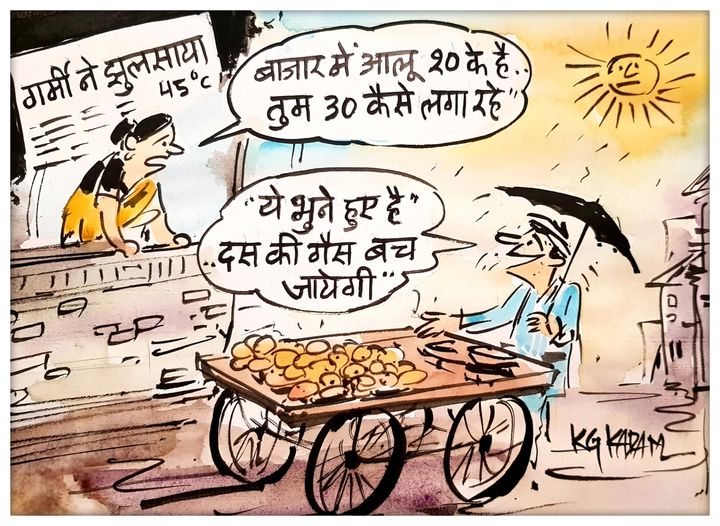 गर्मी ने झुलसाया
45°c
बाजार में आलू 20 के है..
तुम 30 कैसे लगा रहे"
"ये भुने हुए है"
..दस की गैस बच
जायेगी"
KG KADAM